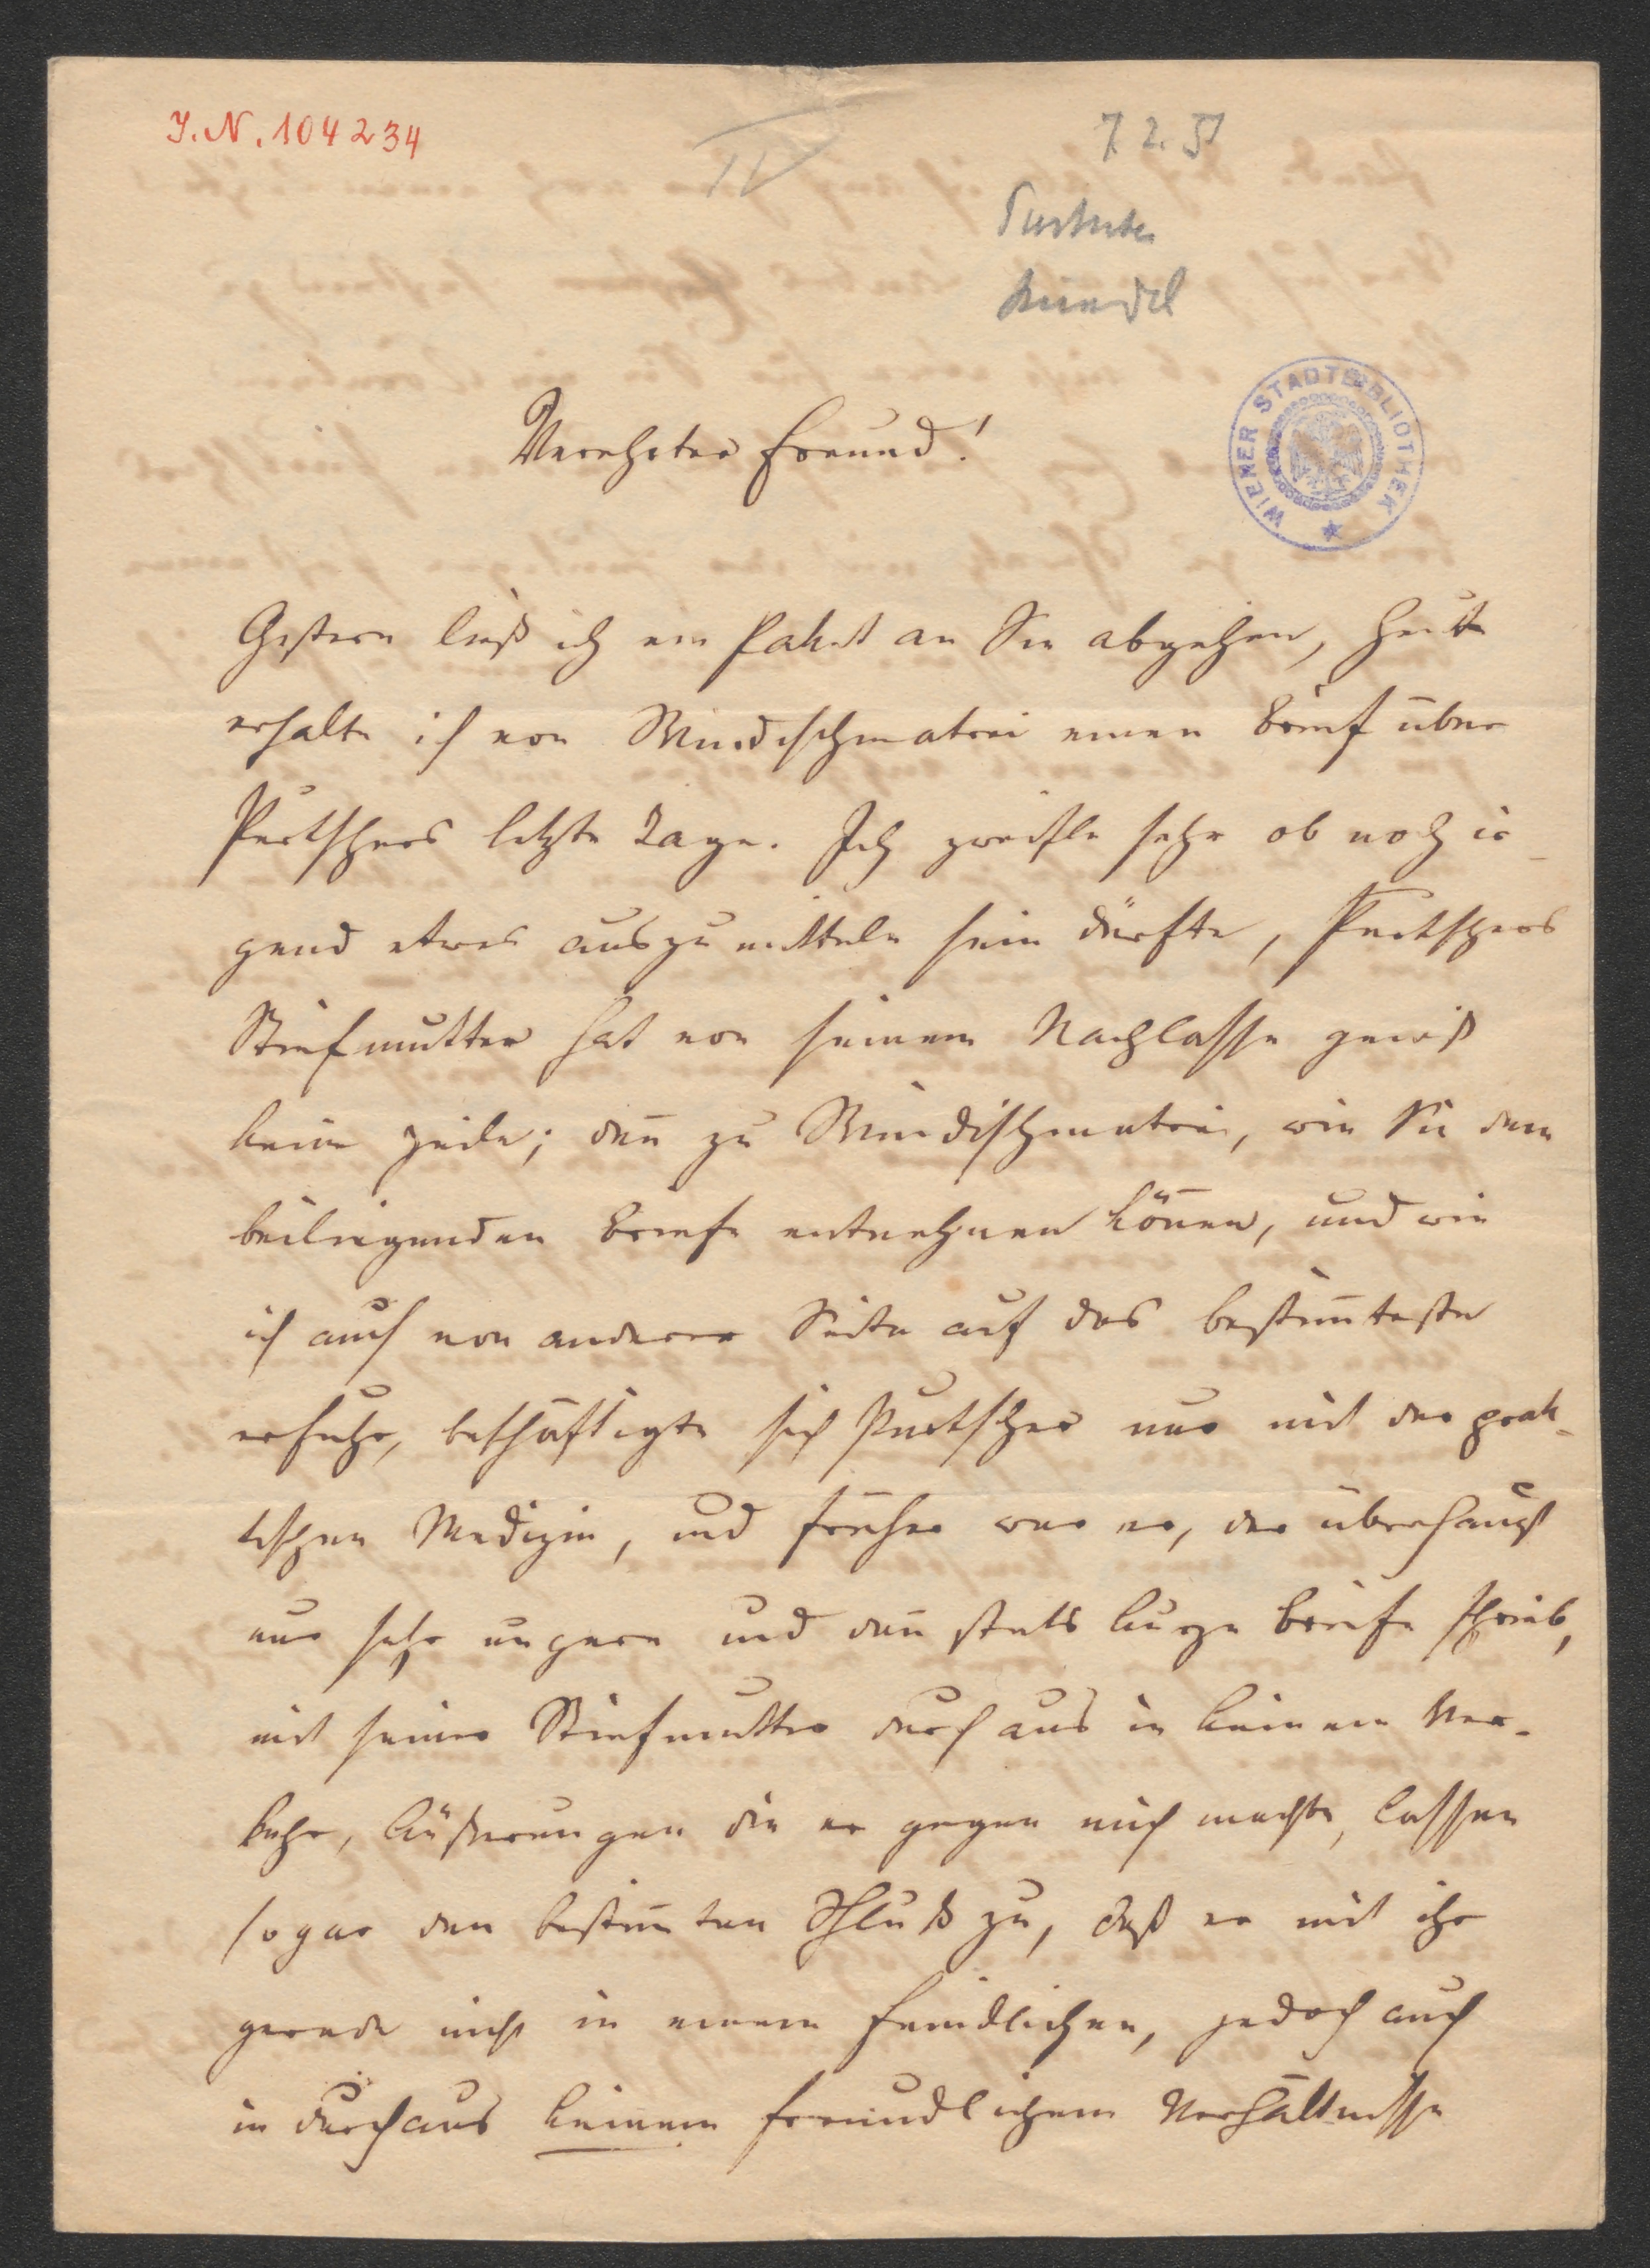 J.N. 104234
IV
7. 2. 51
Purtscher
Verehrter Freund!
WIENER STADTBIBLIOTHEK
Gestern ließ ich ein Paket an Sie abgehen, heute
erhalte ich von Windischmatrei einen Brief über
Purtschers letzte Tage. Ich zweifle sehr ob noch ir-
gend etwas auszumitteln sein dürfte, Purtschers
Stiefmutter hat von seinem Nachlasse gewiß
keine Zeile; den̄ zu Windischmatrei, wie Sie dem
beiliegenden Briefe entnehmen kön̄en, und wie
ich auch von anderer Seite auf das bestim̄teste
erfuhr, beschäftigte sich Purtscher nur mit der prak-
tischen Medizin, und früher war er, der überhaupt
nur sehr ungern und dan̄ stets kurze Briefe schrieb,
mit seiner Stiefmutter durchaus in keinem Ver-
kehr, Äußerungen die er gegen mich machte, lassen
sogar den bestim̄ten Schluß zu, daß er mit ihr
gerade nicht in einem feindlichen, jedoch auch
in durchaus keinem freundlichem Verhältnisse